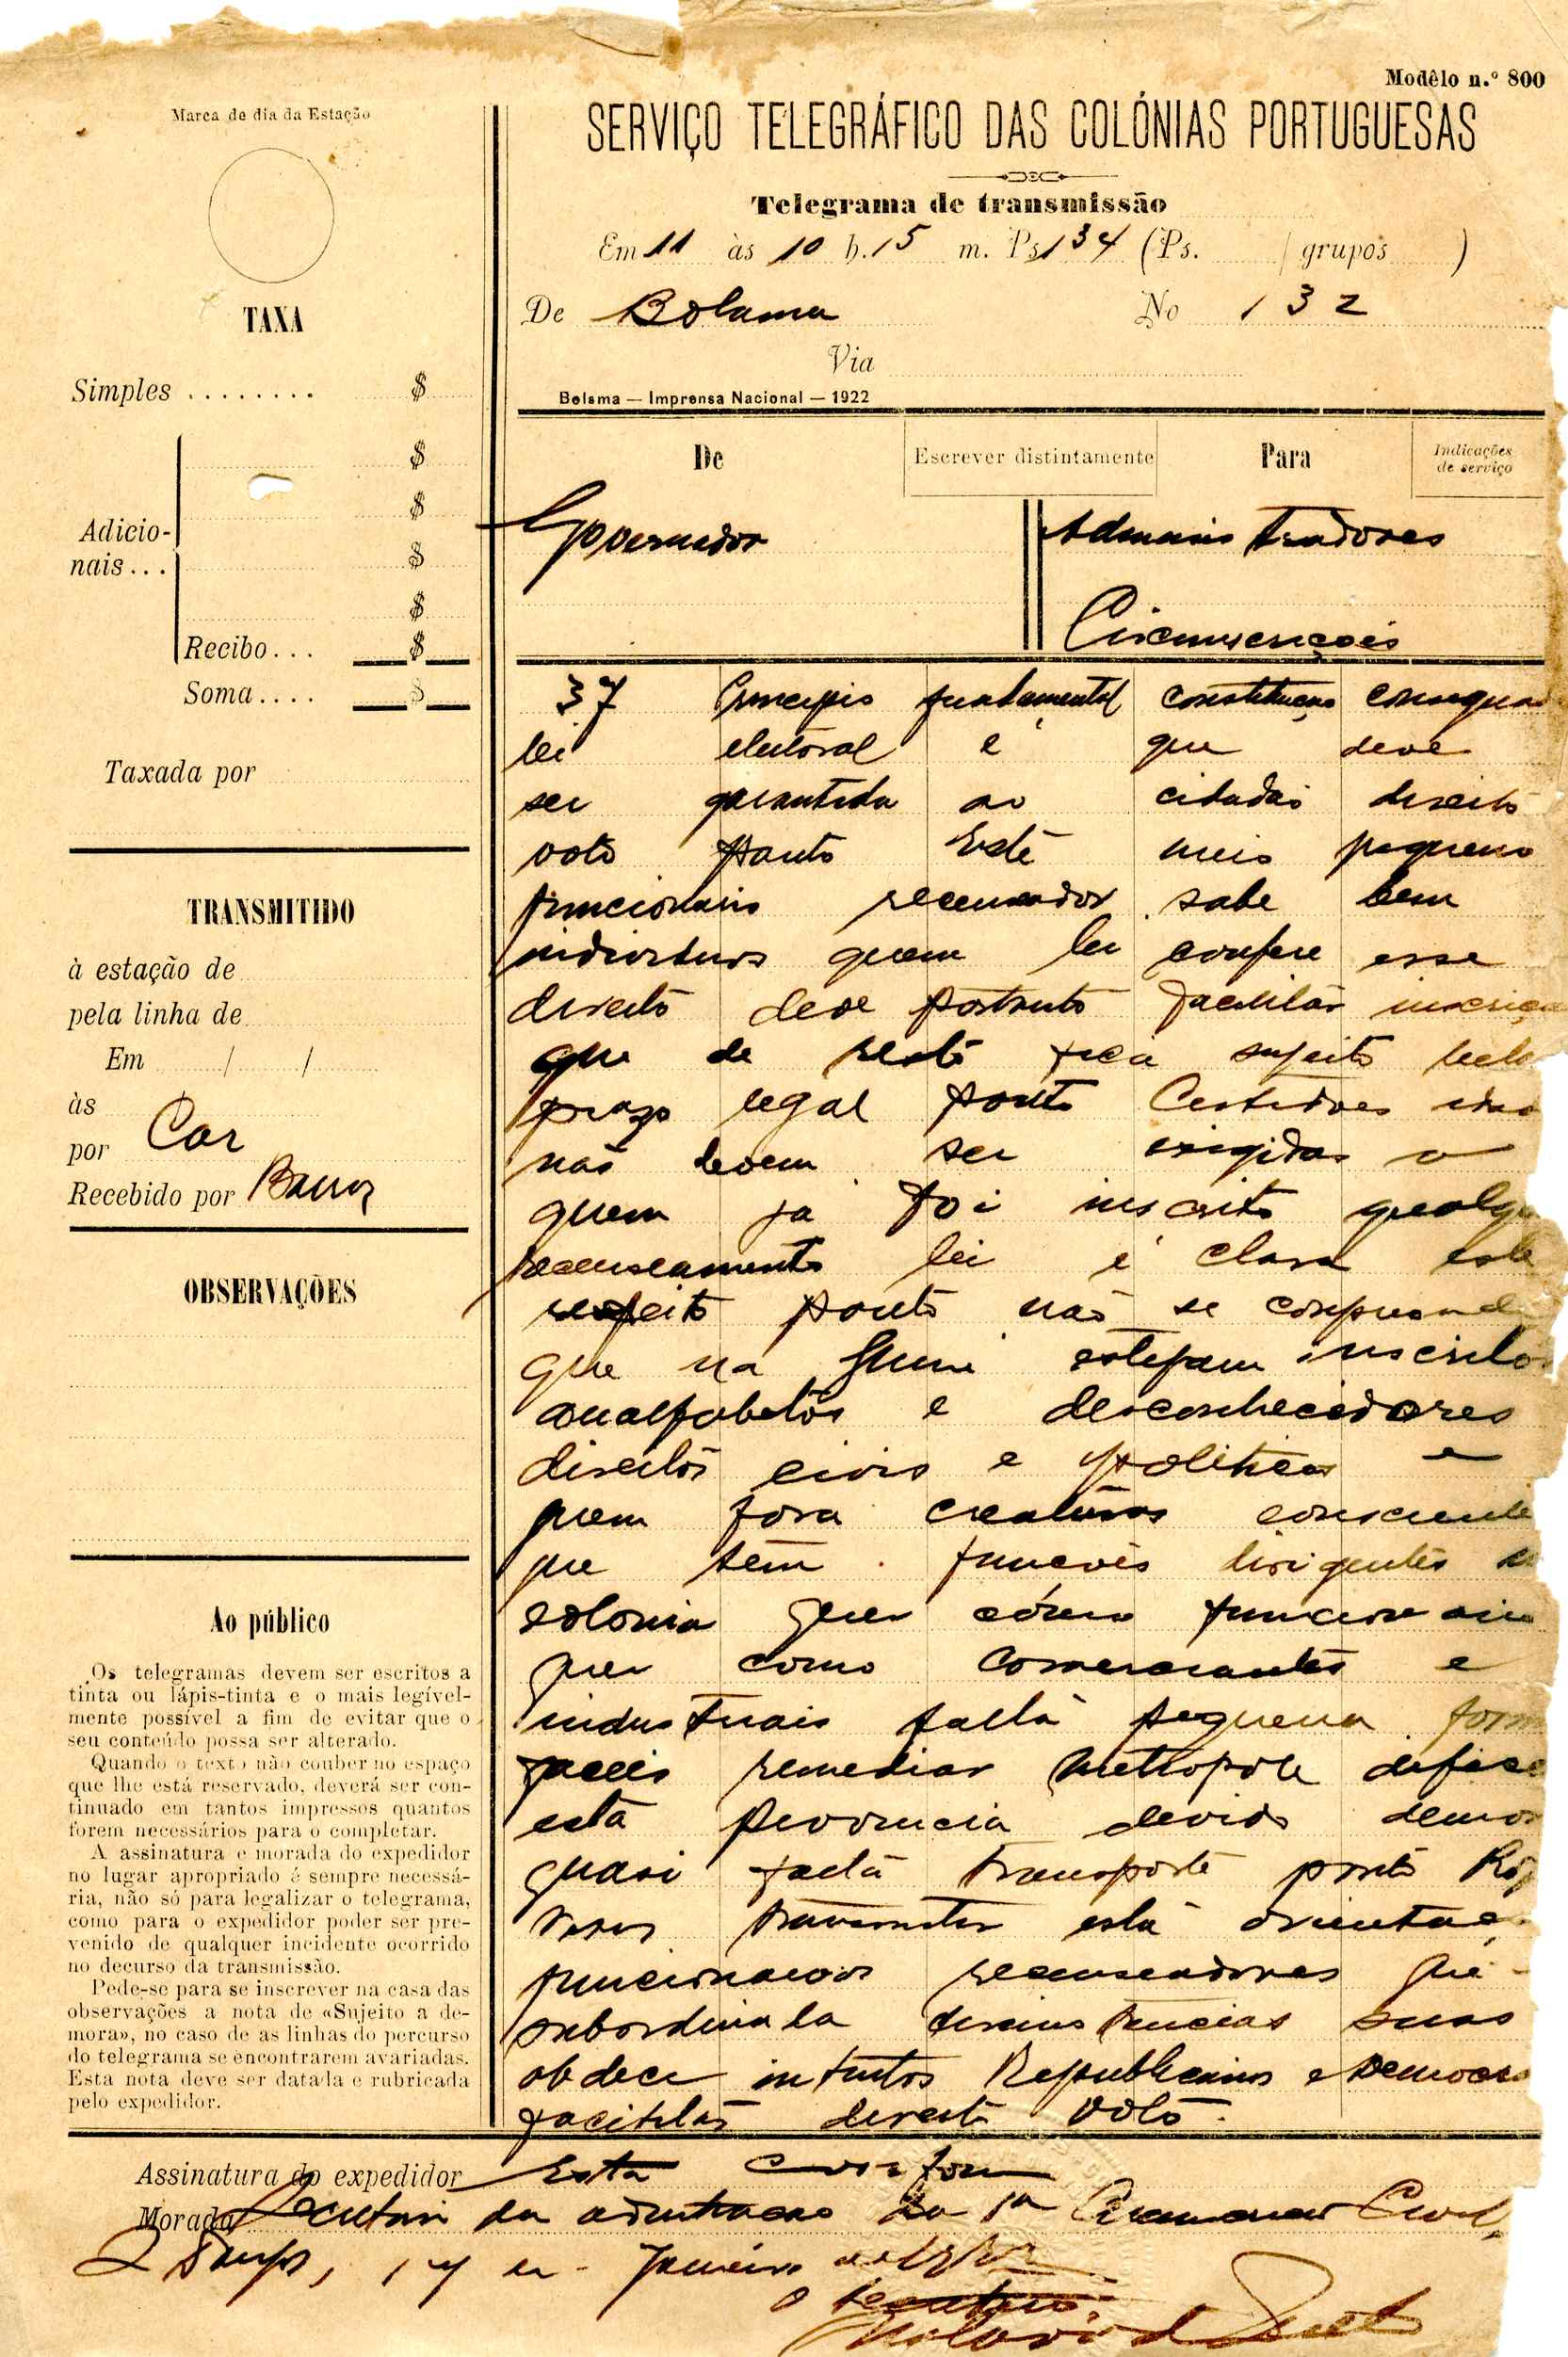 Modêlo n.º 800
Marca de dia da Estação
SERVIÇO TELEGRÁFICO DAS COLÓNIAS PORTUGUESAS
Telegrama de transmissão
Em 11 às 10 h. 15 m. Ps 134 (Ps. / grupos )
De Bolama No 132
Via
Bolama — Imprensa Nacional — 1922
TAXA
Simples ........ $
$
$
Adicio-
nais... $
$
Recibo... $
Soma.... $
Taxada por
TRANSMITIDO
à estação de
pela linha de
Em / /
às
por Car
Recebido por Barros
OBSERVAÇÕES
Ao público
Os telegramas devem ser escritos a
tinta ou lápis-tinta e o mais legível-
mente possível a fim de evitar que o
seu conteúdo possa ser alterado.
Quando o texto não couber no espaço
que lhe está reservado, deverá ser con-
tinuado em tantos impressos quantos
forem necessários para o completar.
A assinatura e morada do expedidor
no lugar apropriado é sempre necessá-
ria, não só para legalizar o telegrama,
como para o expedidor poder ser pre-
venido de qualquer incidente ocorrido
no decurso da transmissão.
Pede-se para se inscrever na casa das
observações a nota de «Sujeito a de-
mora», no caso de as linhas do percurso
do telegrama se encontrarem avariadas.
Esta nota deve ser datada e rubricada
pelo expedidor.
De Escrever distintamente Para Indicações
de serviço
Governador Administradores
Circunscrições
37 Principio fundamental constituição
lei eleitoral é que deve
ser garantida ao cidadão direito
voto ponto Este meio pequeno
funcionario recenseador sabe bem
individuos quem lei confere esse
direito deve portanto facilitar
que de resto fica sujeito
prazo legal ponto Certidões
não devem ser exigidas a
quem já foi inscrito
recenseamento lei é clara
respeito ponto não se
que na Guiné estejam inscritos
analfabetos e desconhecedores
direitos civis e politicos e
quem fora creaturas
que têm funcões dirigentes
colonia quer cómo
quer como comerciantes e
industriais falta pequena
faceis remediar metropole
esta provincia devido
quasi falta transporte ponto
transmitir esta
funcionarios recenseadores que
subordinada circunstancias suas
obdece intuitos Republicanos e
facilitar direito voto.
Assinatura do expedidor Está conforme
Morada Secretaria da administração da 1ª Civil,
17 de Janeiro de
O secretario